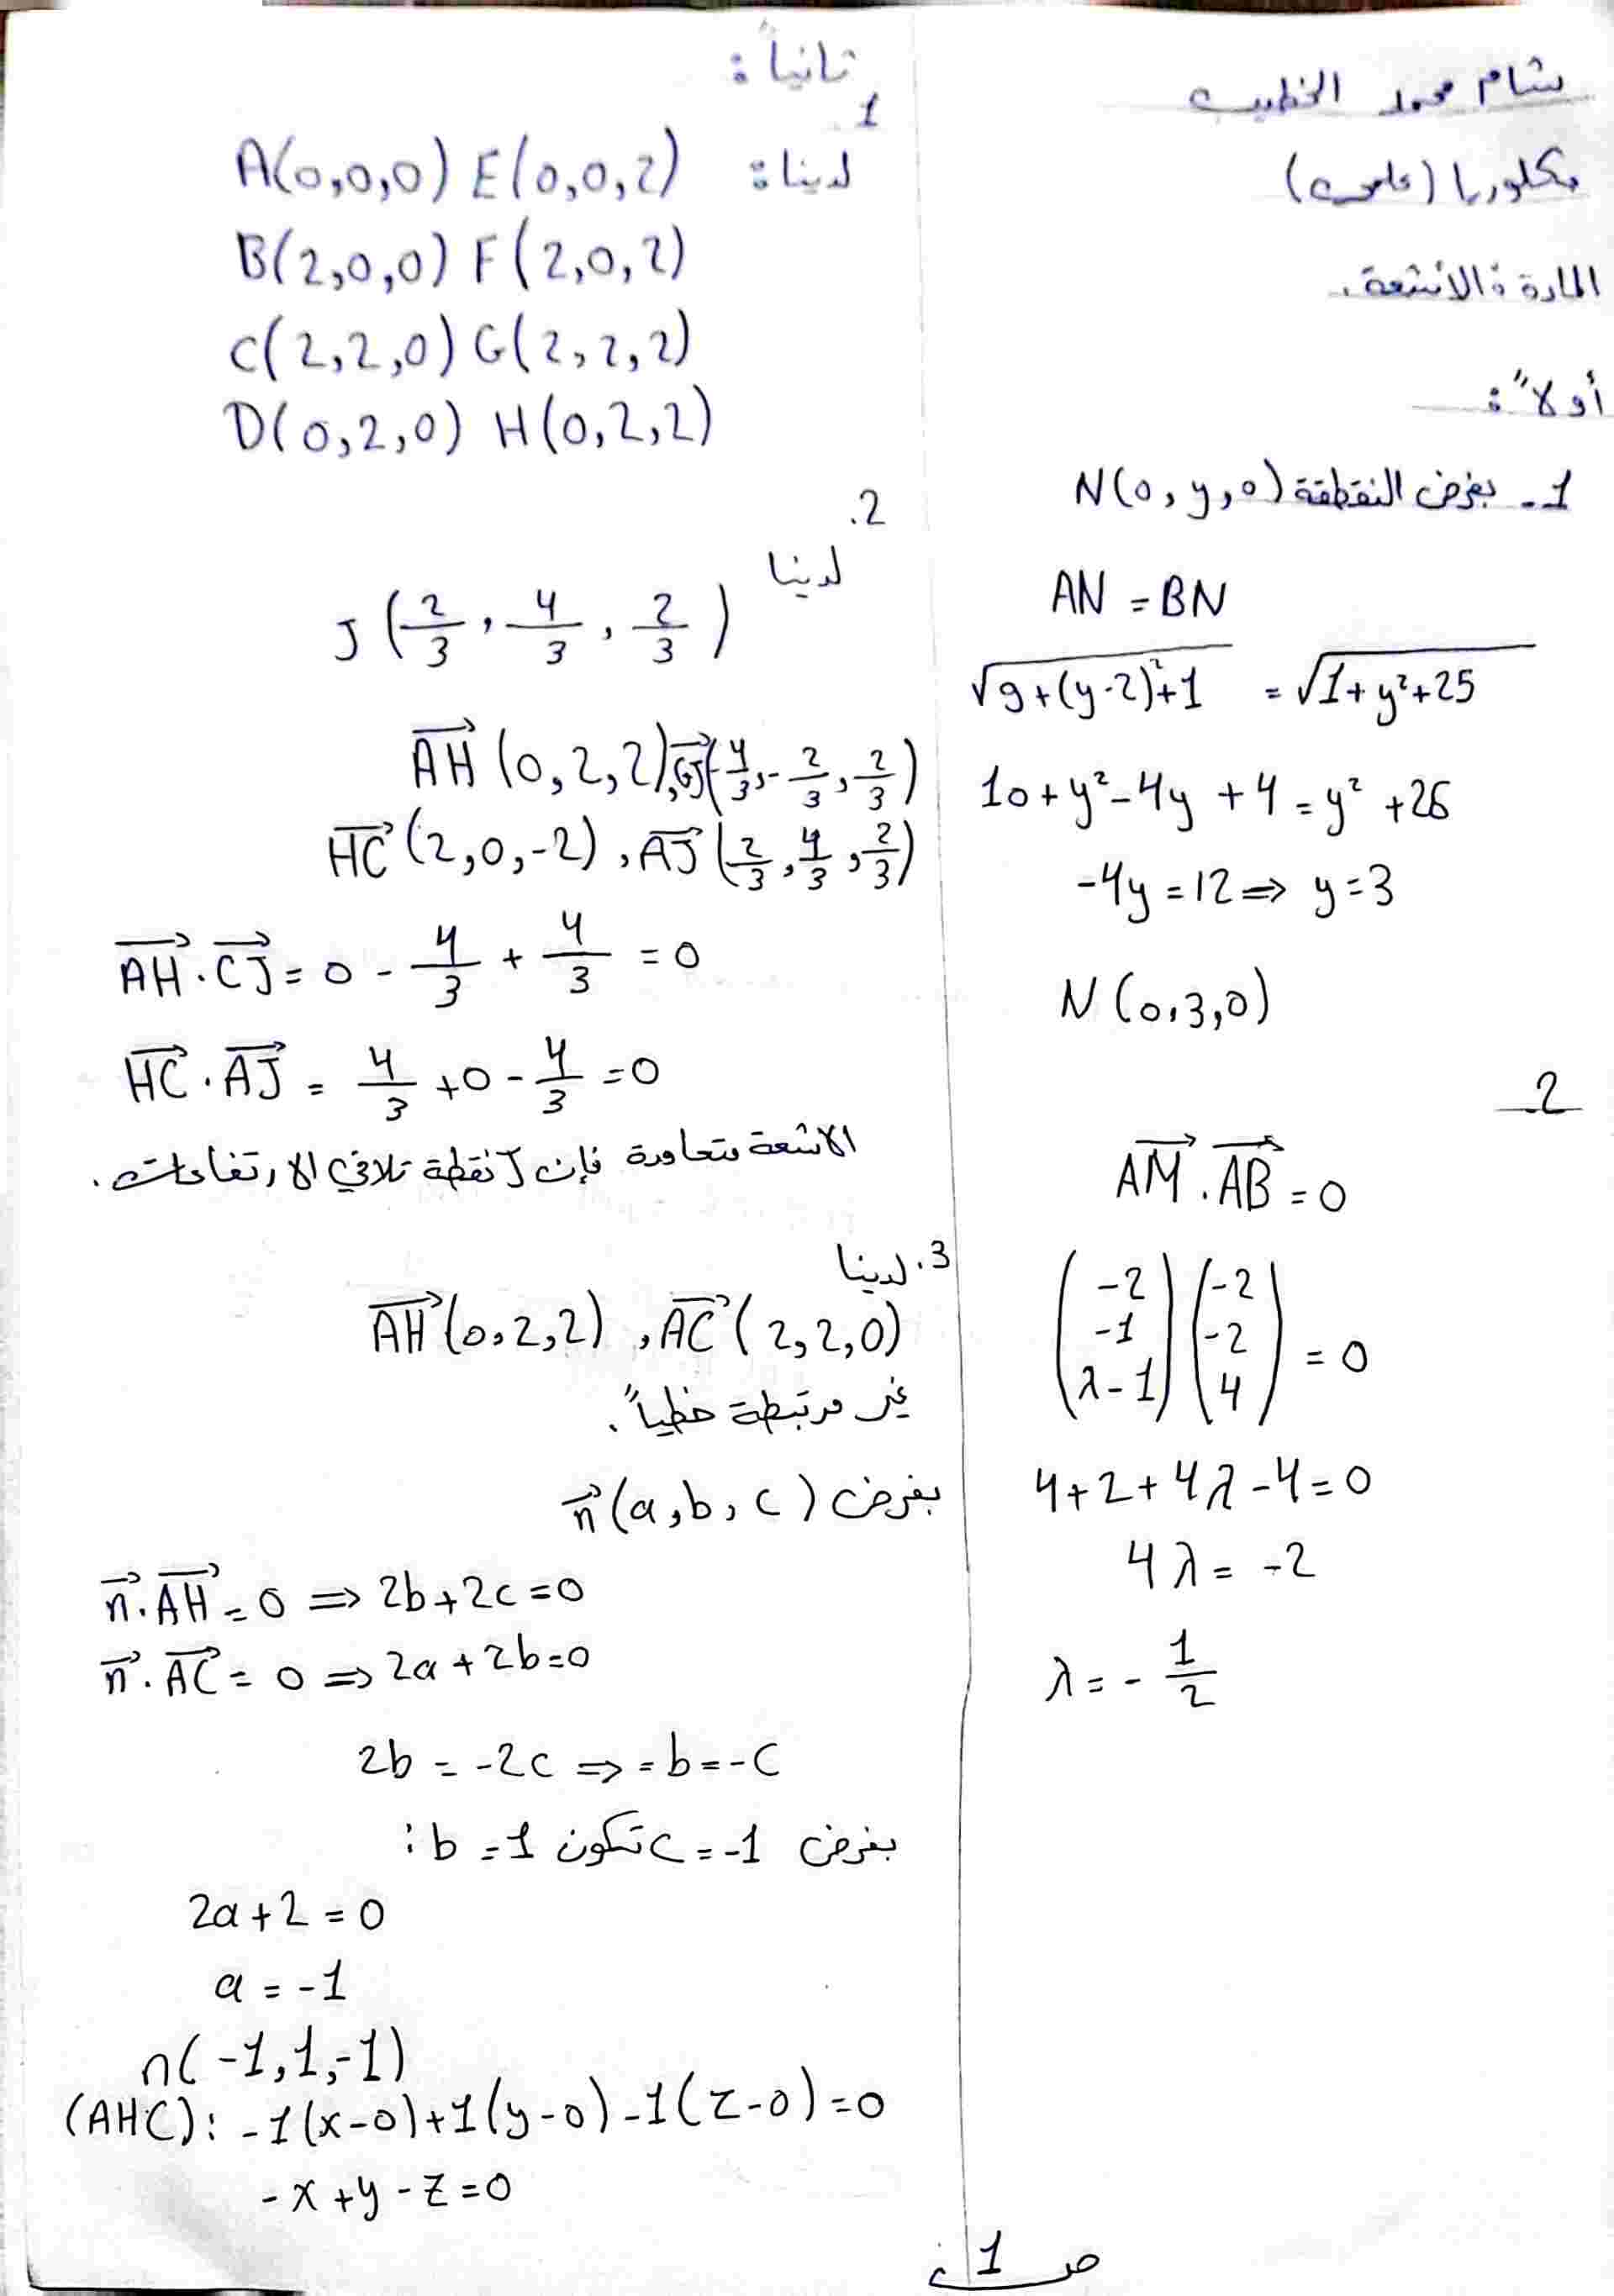 بشام محمد الخطيب
بكلوريا (علمي)
المادة: الأشعة.
أولاً:
1- بفرض النقطة N(0, y, 0)
AN = BN
√9+(y-2)²+1 = √1+y²+25
10+y²-4y+4=y²+26
-4y=12⇒ y=3
N(0,3,0)
2
AM→ . AB→ = 0
(-2 -1 λ-1) (-2 -2 4) = 0
4+2+4λ-4=0
4λ= -2
λ= - 1/2
ثانياً:
1
لدينا: A(0,0,0) E(0,0,2)
B(2,0,0) F(2,0,2)
C(2,2,0) G(2,2,2)
D(0,2,0) H(0,2,2)
2.
لدينا
J(2/3, 4/3, 2/3)
AH→(0,2,2), CJ→(-4/3, -2/3, 2/3)
HC→(2,0,-2), AJ→(2/3, 4/3, 2/3)
AH→ . CJ→ = 0 - 4/3 + 4/3 = 0
HC→ . AJ→ = 4/3 +0 - 4/3 =0
الاشعة متعامدة فإن J نقطة تلاقي الارتفاعات.
3. لدينا
AH→(0,2,2), AC→(2,2,0)
غير مرتبطة خطياً.
بفرض n→(a,b,c)
n→.AH→=0 ⇒ 2b+2c=0
n→.AC→=0 ⇒ 2a+2b=0
2b = -2c ⇒ =b=-c
بفرض c=-1 تكون b=1:
2a+2=0
a=-1
n(-1,1,-1)
(AHC): -1(x-0)+1(y-0)-1(z-0)=0
-x+y-z=0
ص 1